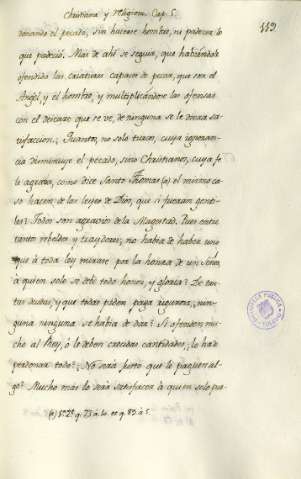 Christiana y Religiosa Cap. 5.
119
donando el pecado, sin hacerse hombre, ni padecer lo
que padeció. Mas de ahí se seguia, que habiendole
ofendido las criaturas capaces de pecar, que son el
Angel, y el hombre, y multiplicandose las ofensas
con el deicato que se ve, de ninguna se le diera sa-
tisfaccion. ¿Quantos, no solo turcos, cuya ignoran-
cia disminuye el pecado, sino Christianos, cuya fe
le agrava, como dice Santo Thomas (a) el mismo ca-
so hacen de las leyes de Dios, que si fueran genti-
les? Todos son agravios de la Magestad. Pues entre
tantos rebeldes y traydores, no habia de haber uno
que à toda ley mirase por la honra de un Señor,
à quien solo se debe todo honor, y gloria? De tan-
tas deudas, y que todas piden paga rigurosa, nin-
guna ninguna se habia de dar? Si ofenden mu-
cho al Rey, ó le deben crecidas cantidades, lo ha de
perdonar todo? ¿No será justo que le paguen al-
go? Mucho más lo sería satisfacer à quien solo pa-
(a) 2ª 2ª q. 73 a.